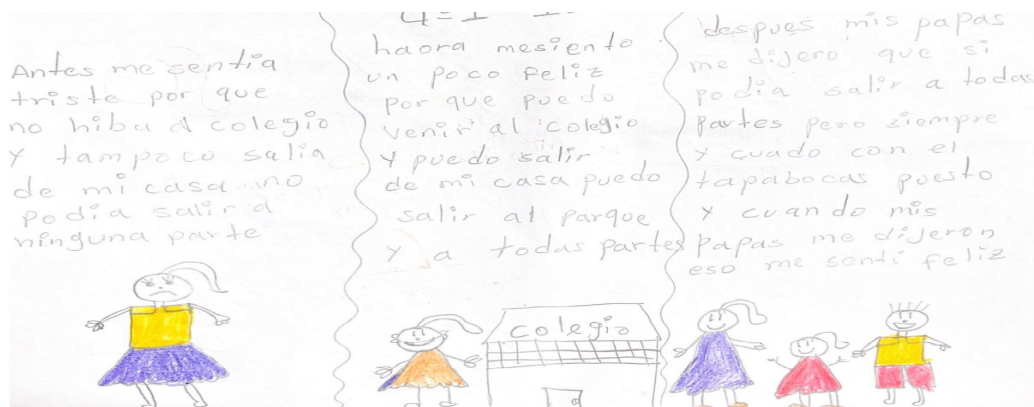 Antes me sentia
triste por que
no hiba al colegio
y tampoco salia
de mi casa no
podia salir a
ninguna parte
haora mesiento
un poco feliz
por que puedo
venir al colegio
y puedo salir
de mi casa puedo
salir al parque
y a todas partes
colegio
despues mis papas
me dijero que si
podia salir a todas
partes pero siempre
y cuado con el
tapabocas puesto
y cuando mis
papas me dijeron
eso me senti feliz